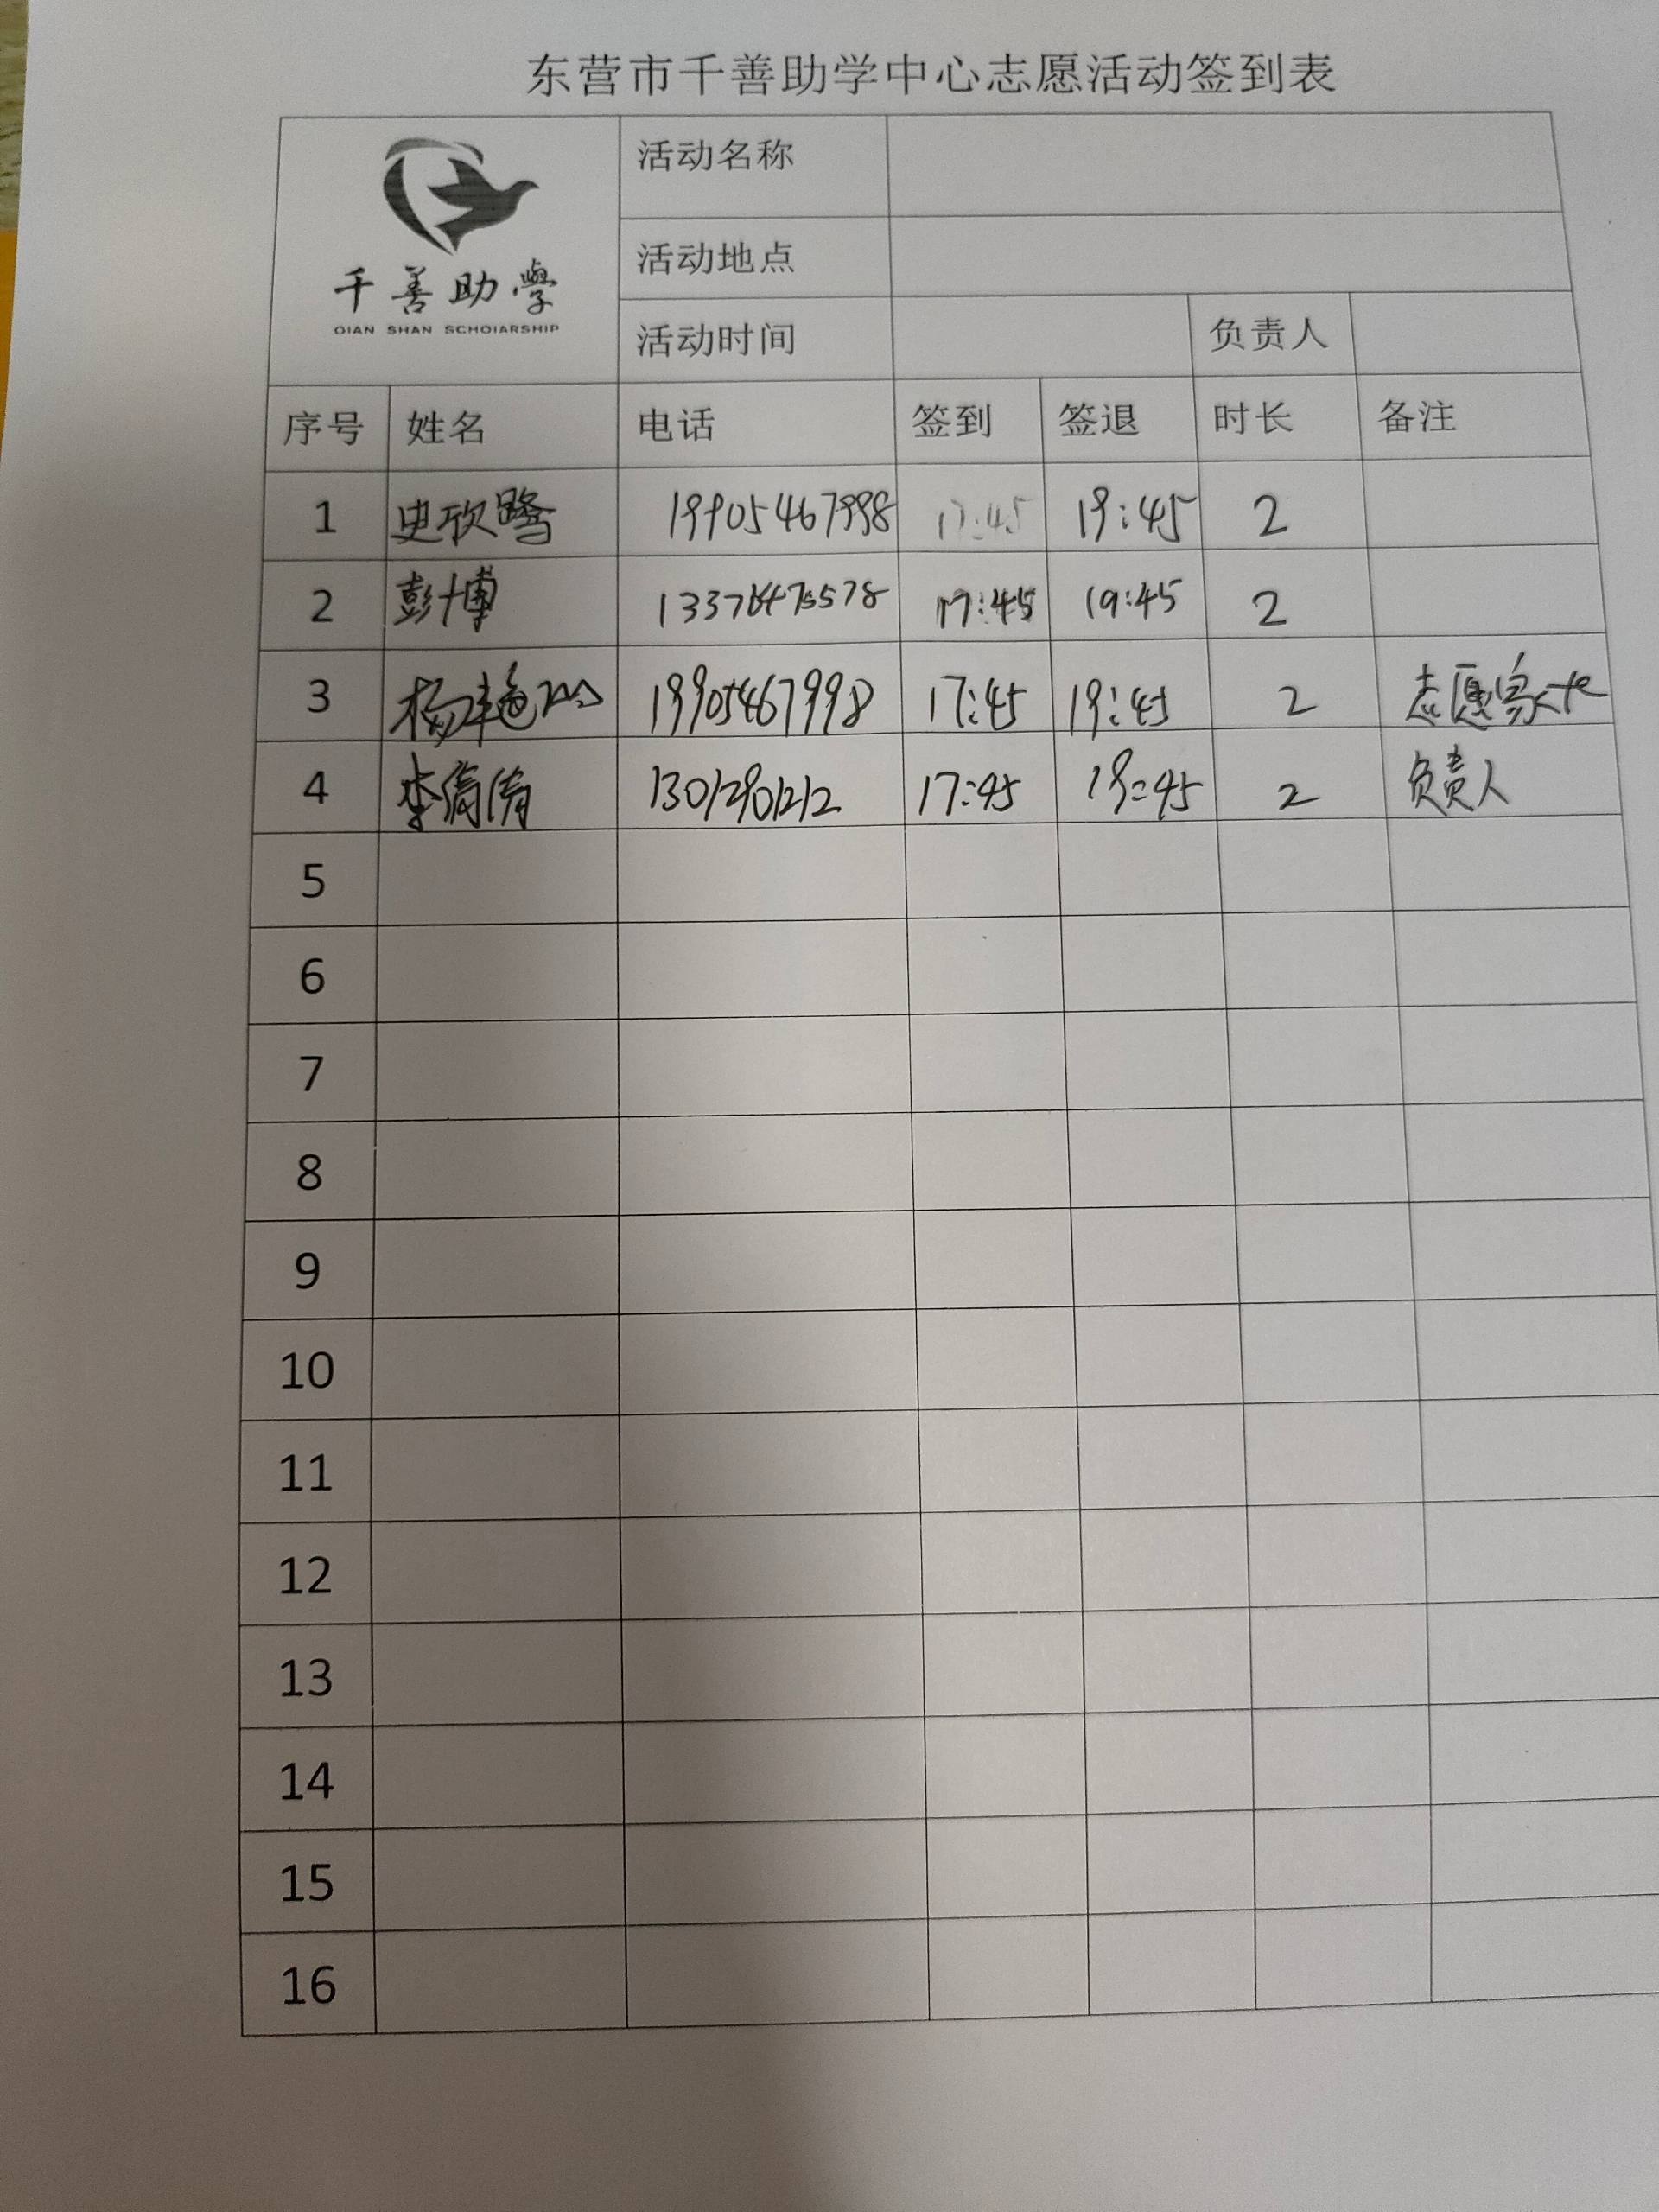 东营市千善助学中心志愿活动签到表
千善助學
QIAN SHAN SCHOIARSHIP
活动名称
活动地点
活动时间 负责人
序号 姓名 电话 签到 签退 时长 备注
1 史欣鹭 19905467998 17:45 19:45 2
2 彭博 17:45 19:45 2
3 19905467998 17:45 19:45 2 志愿家长
4 李倩倩 13012901212 17:45 19:45 2 负责人
5
6
7
8
9
10
11
12
13
14
15
16